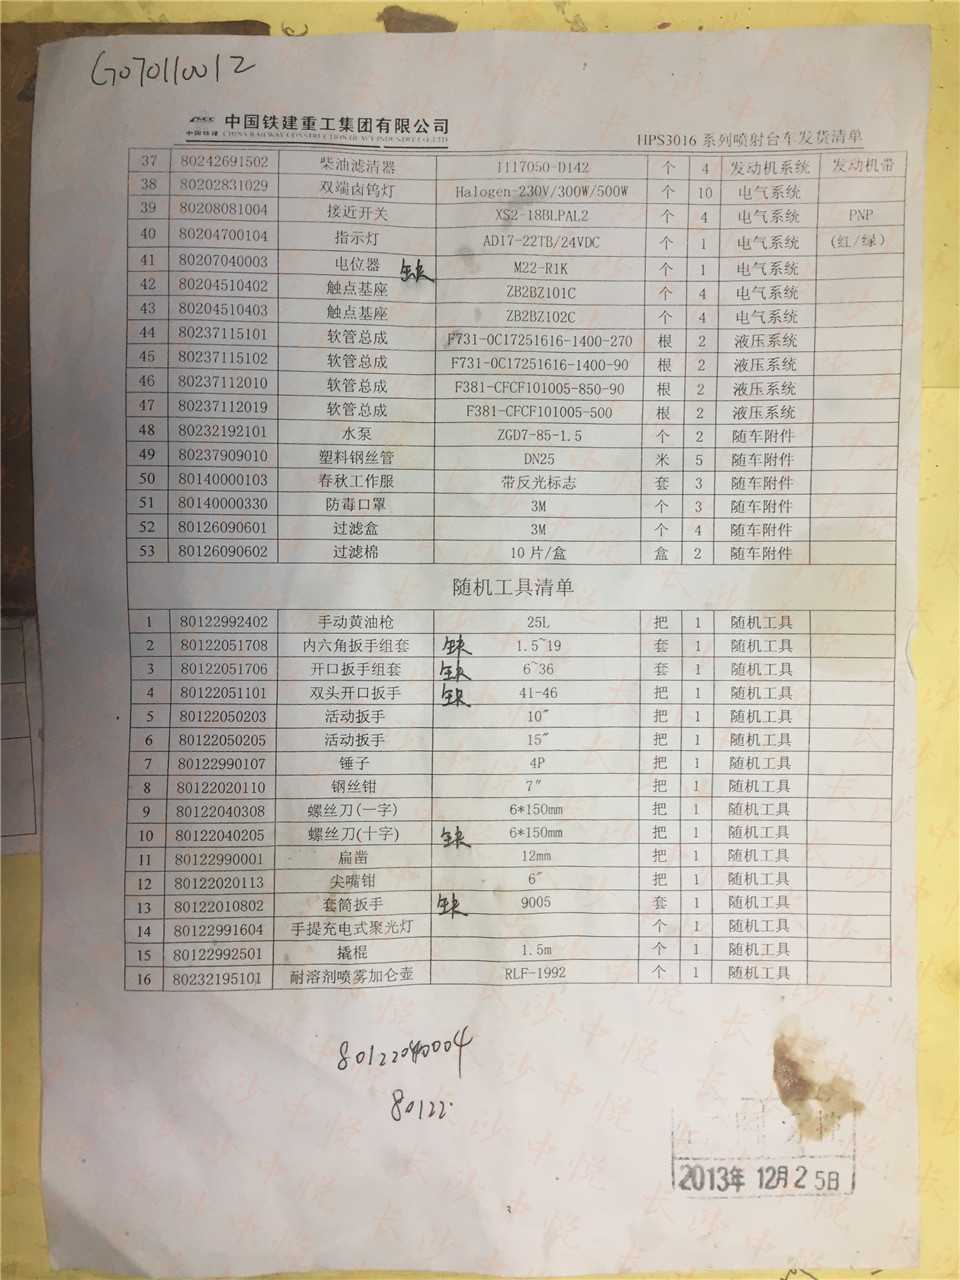 G070110012
中国铁建重工集团有限公司
中国铁建 CHINA RAILWAY CONSTRUCTION HEAVY INDUSTRY CO.,LTD
HPS3016 系列喷射台车发货清单
37 80242691502 柴油滤清器 1117050-D142 个 4 发动机系统 发动机带
38 80202831029 双端卤钨灯 Halogen-230V/300W/500W 个 10 电气系统
39 80208081004 接近开关 XS2-18BLPAL2 个 4 电气系统 PNP
40 80204700104 指示灯 AD17-22TB/24VDC 个 1 电气系统 (红/绿)
41 80207040003 电位器 缺 M22-R1K 个 1 电气系统
42 80204510402 触点基座 ZB2BZ101C 个 4 电气系统
43 80204510403 触点基座 ZB2BZ102C 个 4 电气系统
44 80237115101 软管总成 F731-0C17251616-1400-270 根 2 液压系统
45 80237115102 软管总成 F731-0C17251616-1400-90 根 2 液压系统
46 80237112010 软管总成 F381-CFCF101005-850-90 根 2 液压系统
47 80237112019 软管总成 F381-CFCF101005-500 根 2 液压系统
48 80232192101 水泵 ZGD7-85-1.5 个 2 随车附件
49 80237909010 塑料钢丝管 DN25 米 5 随车附件
50 80140000103 春秋工作服 带反光标志 套 3 随车附件
51 80140000330 防毒口罩 3M 个 3 随车附件
52 80126090601 过滤盒 3M 个 4 随车附件
53 80126090602 过滤棉 10 片/盒 盒 2 随车附件
随机工具清单
1 80122992402 手动黄油枪 25L 把 1 随机工具
2 80122051708 内六角扳手组套 缺 1.5~19 套 1 随机工具
3 80122051706 开口扳手组套 缺 6~36 套 1 随机工具
4 80122051101 双头开口扳手 缺 41-46 把 1 随机工具
5 80122050203 活动扳手 10" 把 1 随机工具
6 80122050205 活动扳手 15" 把 1 随机工具
7 80122990107 锤子 4P 把 1 随机工具
8 80122020110 钢丝钳 7" 把 1 随机工具
9 80122040308 螺丝刀(一字) 6*150mm 把 1 随机工具
10 80122040205 螺丝刀(十字) 缺 6*150mm 把 1 随机工具
11 80122990001 扁凿 12mm 把 1 随机工具
12 80122020113 尖嘴钳 6" 把 1 随机工具
13 80122010802 套筒扳手 缺 9005 套 1 随机工具
14 80122991604 手提充电式聚光灯 个 1 随机工具
15 80122992501 撬棍 1.5m 个 1 随机工具
16 80232195101 耐溶剂喷雾加仑壶 RLF-1992 个 1 随机工具
80122040004
80122
2013年 12月 25日
3